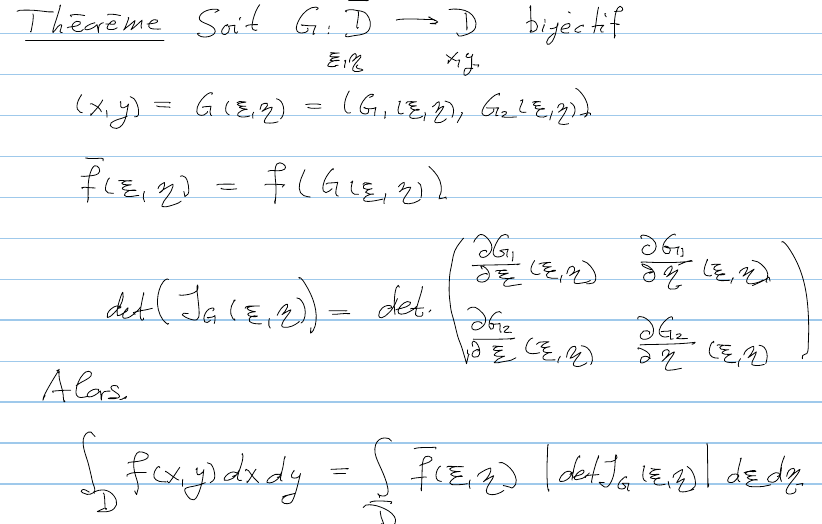 Théorème Soit G : D̄ → D bijectif
ξ,η x,y
(x,y) = G(ξ,η) = (G₁(ξ,η), G₂(ξ,η))
f̄(ξ,η) = f(G(ξ,η))
det(J_G(ξ,η)) = det. ( ∂G₁/∂ξ (ξ,η) ∂G₁/∂η (ξ,η)
∂G₂/∂ξ (ξ,η) ∂G₂/∂η (ξ,η) )
Alors
∫_D f(x,y) dx dy = ∫_D̄ f̄(ξ,η) |det J_G (ξ,η)| dξ dη